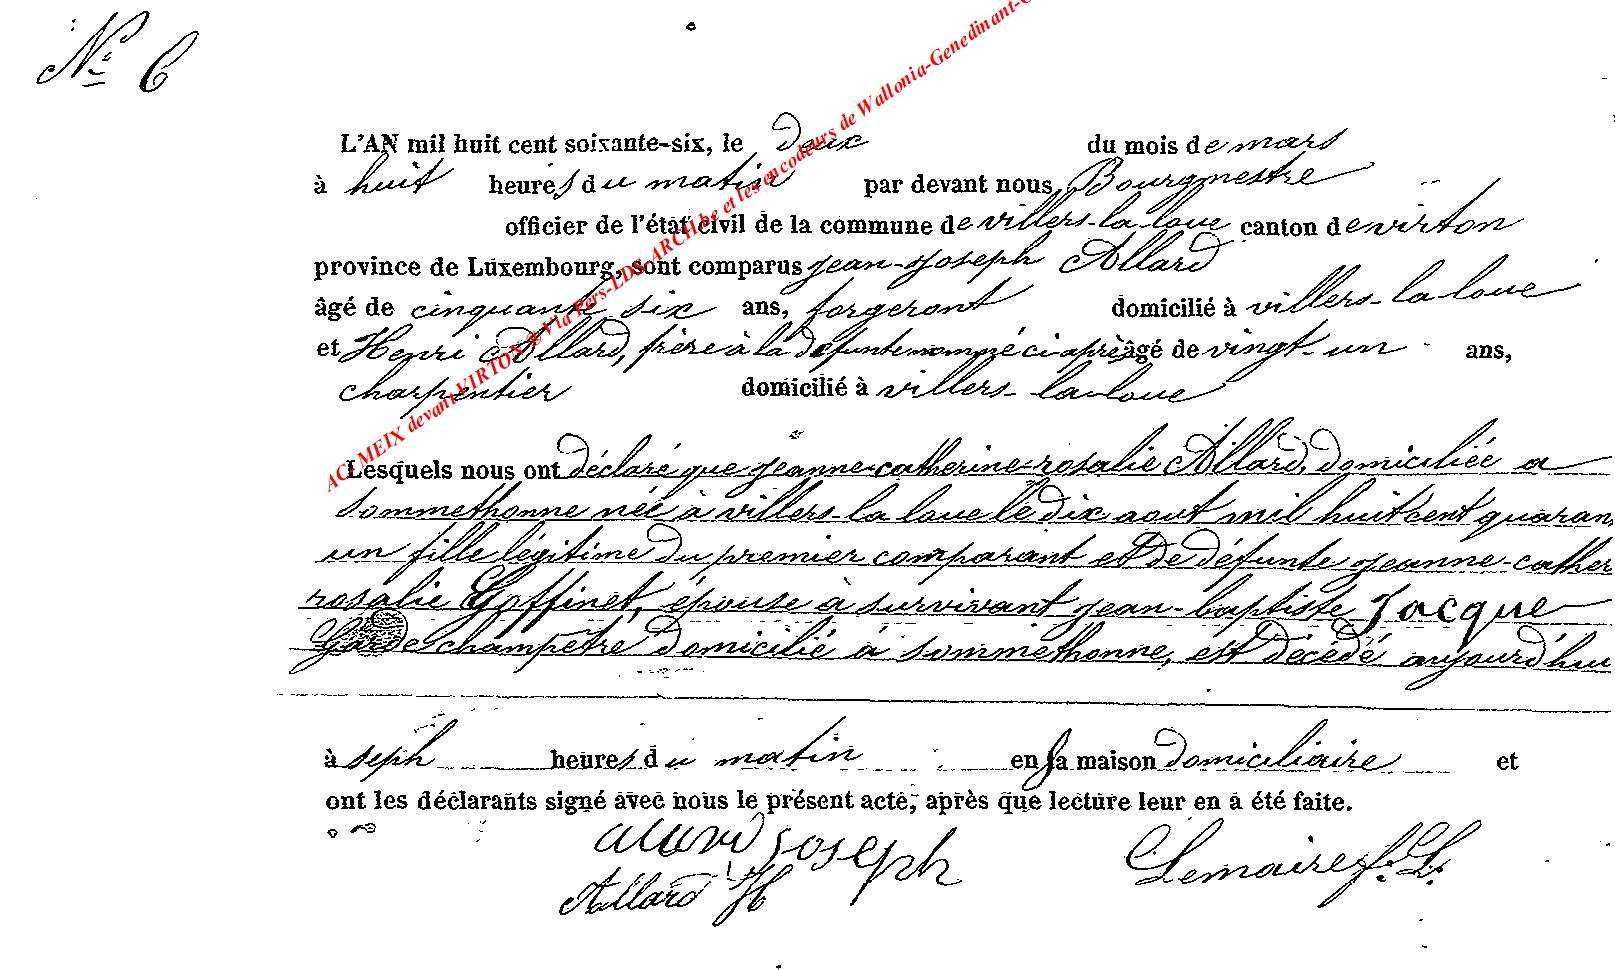 N° 6
L'AN mil huit cent soixante-six, le deux du mois de mars
à huit heures du matin par devant nous Bourgmestre
officier de l'état civil de la commune de villers-la-loue canton de virton
province de Luxembourg, sont comparus jean-joseph Allard
âgé de cinquante six ans, forgeront domicilié à villers-la-loue
et Henri Allard, frère à la défunte nommé ci après âgé de vingt-un ans,
charpentier domicilié à villers-la-loue
Lesquels nous ont déclaré que jeanne-catherine-rosalie Allard, domiciliée a
sommethonne née à villers-la loue le dix aout mil huit cent quaran
un fille légitime du premier comparant et de défunte jeanne-cather
rosalie Goffinet, épouse à survivant jean-baptiste Jacque
Garde champetre domicilié à sommethonne, est décédé aujourd'hui
à seph heures du matin en sa maison domiciliaire et
ont les déclarants signé avec nous le présent acte, après que lecture leur en a été faite.
alard joseph
Allard H
Lemaire f. L.
AC MEIX devant VIRTON @ Via Pers-EDS ARCH be et les encodeurs de Wallonia-Genedinant-